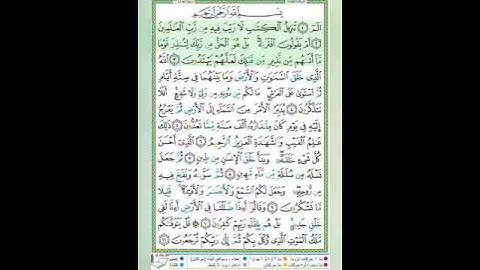 بِسْمِ ٱللَّهِ ٱلرَّحْمَٰنِ ٱلرَّحِيمِ
الٓمٓ ١ تَنزِيلُ ٱلْكِتَٰبِ لَا رَيْبَ فِيهِ مِن رَّبِّ ٱلْعَٰلَمِينَ
٢ أَمْ يَقُولُونَ ٱفْتَرَىٰهُ ۚ بَلْ هُوَ ٱلْحَقُّ مِن رَّبِّكَ لِتُنذِرَ قَوْمًا
مَّآ أَتَىٰهُم مِّن نَّذِيرٍ مِّن قَبْلِكَ لَعَلَّهُمْ يَهْتَدُونَ ٣ ٱللَّهُ
ٱلَّذِى خَلَقَ ٱلسَّمَٰوَٰتِ وَٱلْأَرْضَ وَمَا بَيْنَهُمَا فِى سِتَّةِ أَيَّامٍ
ثُمَّ ٱسْتَوَىٰ عَلَى ٱلْعَرْشِ ۖ مَا لَكُم مِّن دُونِهِۦ مِن وَلِىٍّ وَلَا شَفِيعٍ ۚ أَفَلَا
تَتَذَكَّرُونَ ٤ يُدَبِّرُ ٱلْأَمْرَ مِنَ ٱلسَّمَآءِ إِلَى ٱلْأَرْضِ ثُمَّ يَعْرُجُ
إِلَيْهِ فِى يَوْمٍ كَانَ مِقْدَارُهُۥٓ أَلْفَ سَنَةٍ مِّمَّا تَعُدُّونَ ٥ ذَٰلِكَ
عَٰلِمُ ٱلْغَيْبِ وَٱلشَّهَٰدَةِ ٱلْعَزِيزُ ٱلرَّحِيمُ ٦ ٱلَّذِىٓ أَحْسَنَ
كُلَّ شَىْءٍ خَلَقَهُۥ ۖ وَبَدَأَ خَلْقَ ٱلْإِنسَٰنِ مِن طِينٍ ٧ ثُمَّ جَعَلَ
نَسْلَهُۥ مِن سُلَٰلَةٍ مِّن مَّآءٍ مَّهِينٍ ٨ ثُمَّ سَوَّىٰهُ وَنَفَخَ فِيهِ
مِن رُّوحِهِۦ ۖ وَجَعَلَ لَكُمُ ٱلسَّمْعَ وَٱلْأَبْصَٰرَ وَٱلْأَفْـِٔدَةَ ۚ قَلِيلًا
مَّا تَشْكُرُونَ ٩ وَقَالُوٓا۟ أَءِذَا ضَلَلْنَا فِى ٱلْأَرْضِ أَءِنَّا لَفِى
خَلْقٍ جَدِيدٍۭ ۚ بَلْ هُم بِلِقَآءِ رَبِّهِمْ كَٰفِرُونَ ١٠ قُلْ يَتَوَفَّىٰكُم
مَّلَكُ ٱلْمَوْتِ ٱلَّذِى وُكِّلَ بِكُمْ ثُمَّ إِلَىٰ رَبِّكُمْ تُرْجَعُونَ ١١